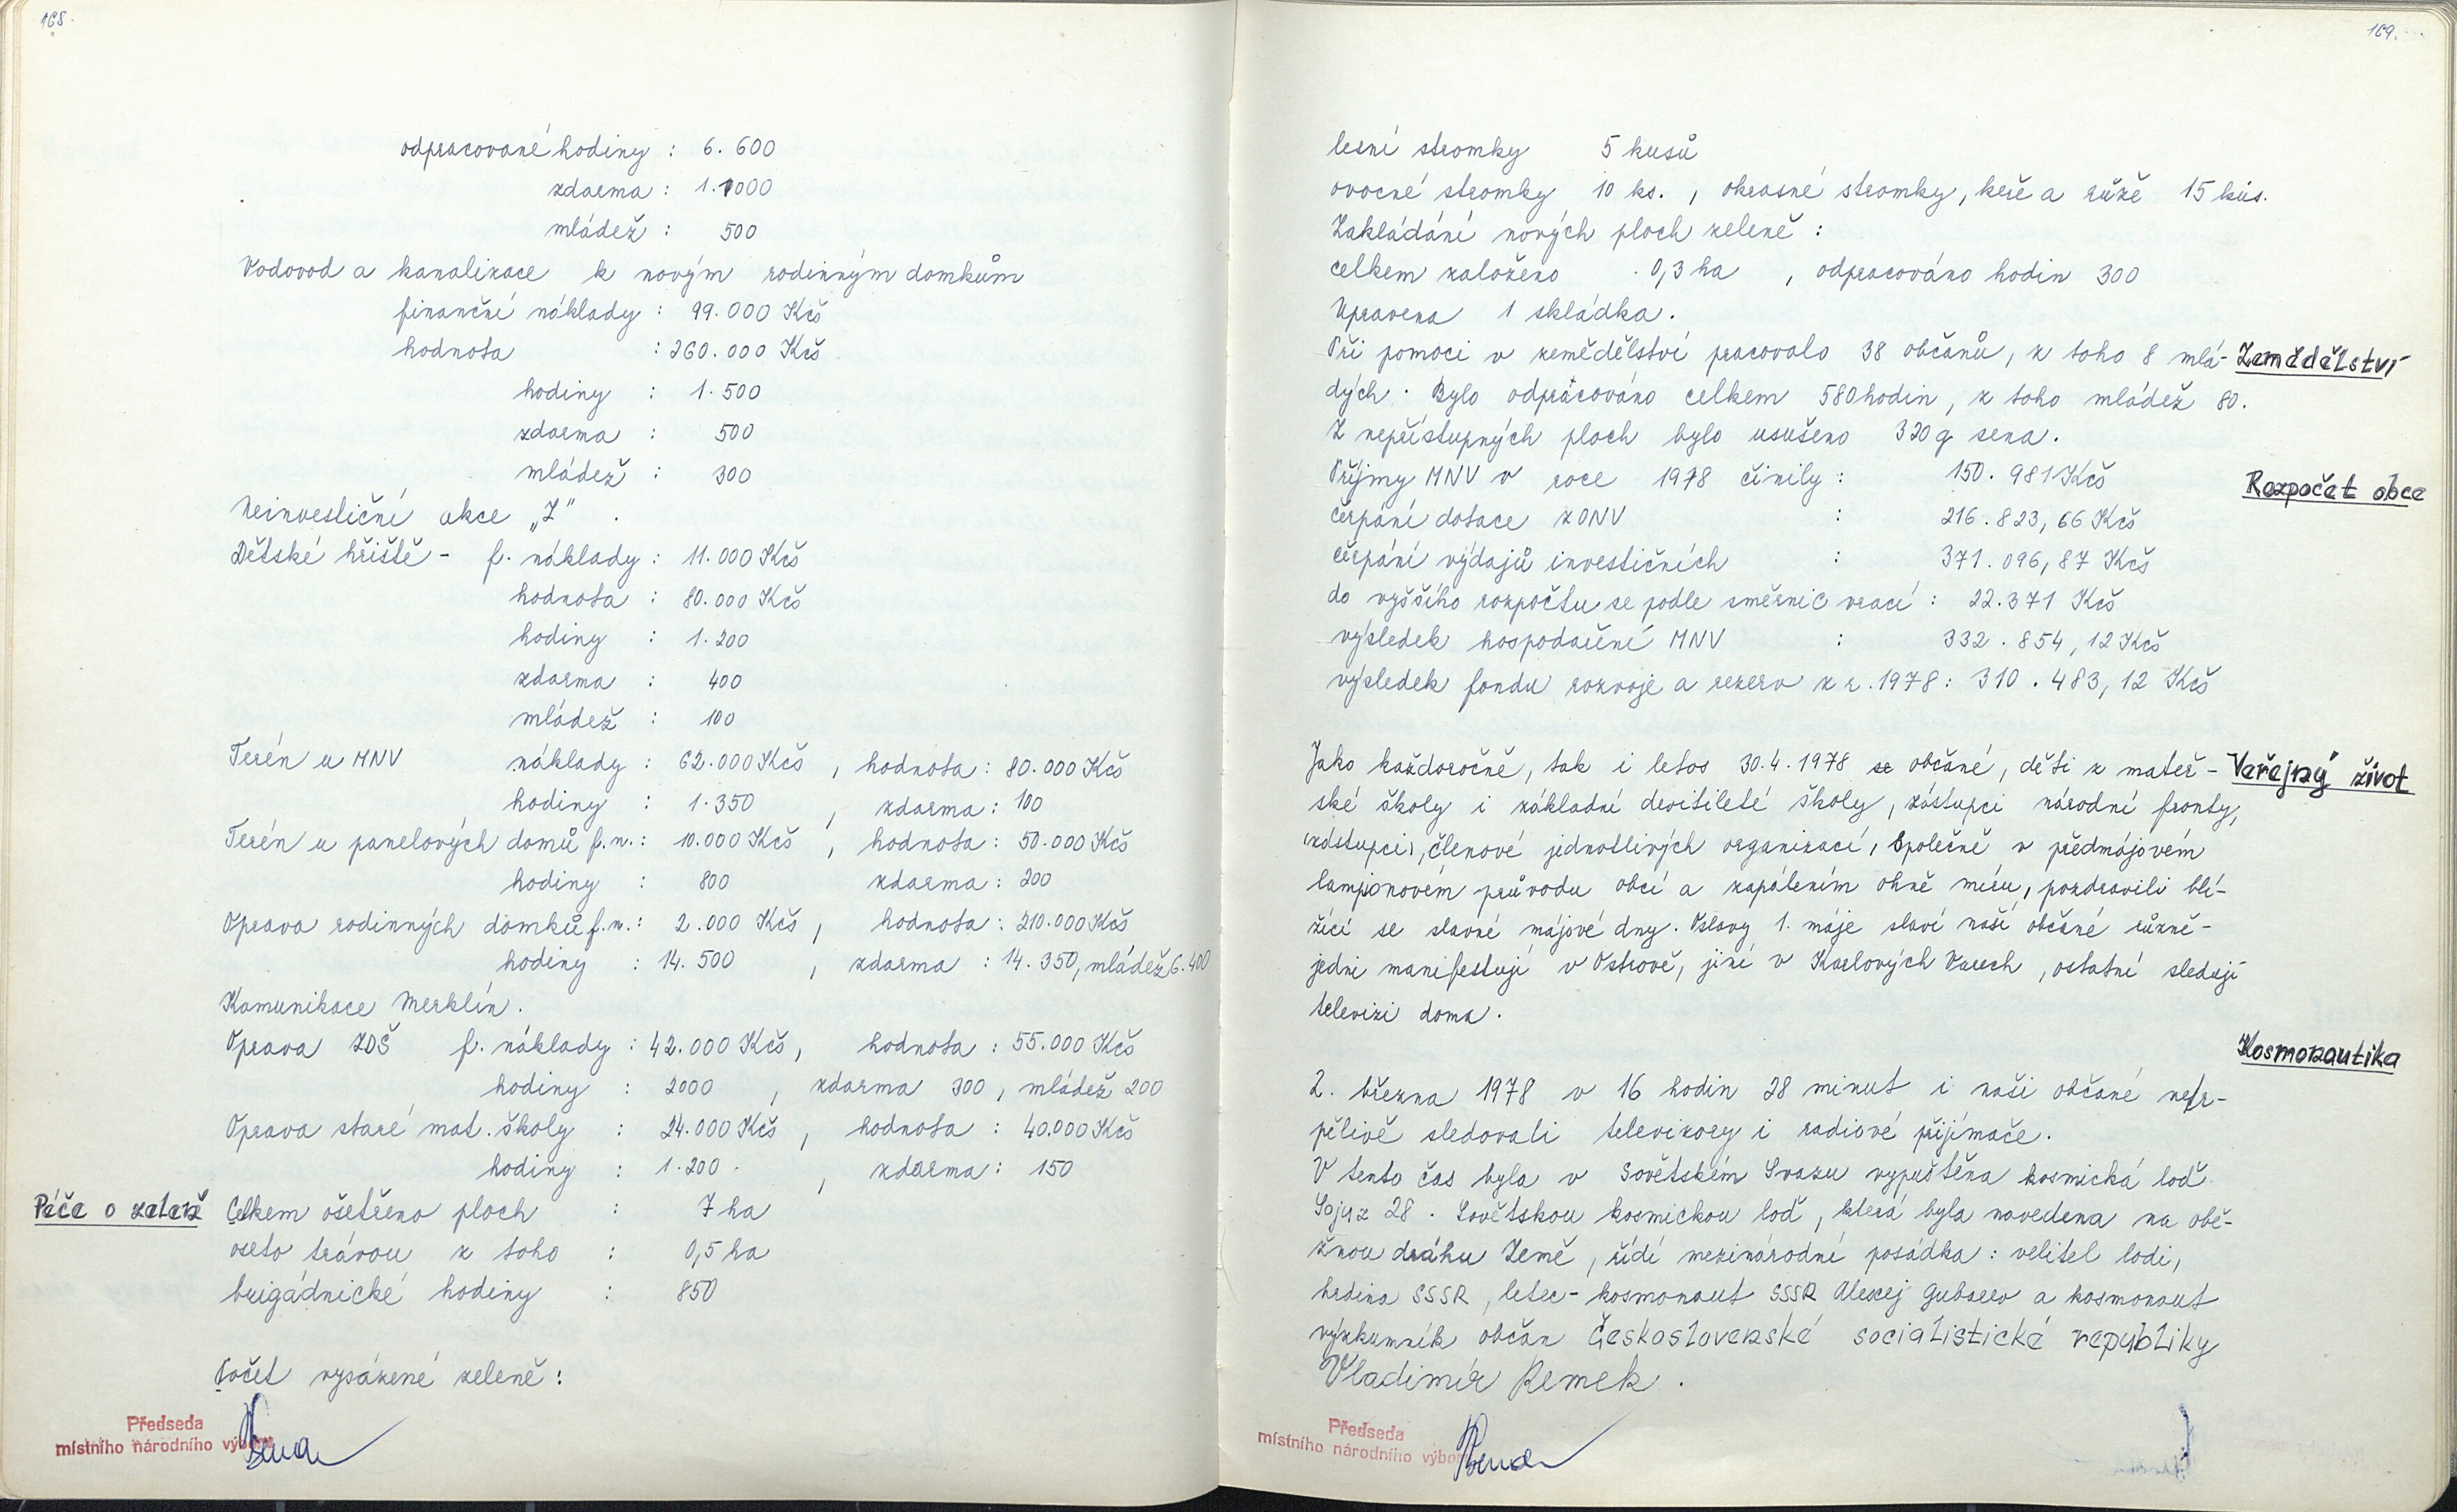 168.
odpracované hodiny : 6.600
zdarma : 1.1000
mládež : 500
Vodovod a kanalizace k novým rodinným domkům
finanční náklady : 99.000 Kčs
hodnota : 260.000 Kčs
hodiny : 1.500
zdarma : 500
mládež : 300
Neinvestiční akce „Z“.
Dětské hřiště - f. náklady : 11.000 Kčs
hodnota : 80.000 Kčs
hodiny : 1.200
zdarma : 400
mládež : 100
Terén u MNV náklady : 62.000 Kčs , hodnota : 80.000 Kčs
hodiny : 1.350 , zdarma : 100
Terén u panelových domů f.n. : 10.000 Kčs , hodnota : 50.000 Kčs
hodiny : 800 zdarma : 200
Oprava rodinných domků f.n. : 2.000 Kčs , hodnota : 210.000 Kčs
hodiny : 14.500 , zdarma : 14.350, mládež 6.400
Komunikace Merklín.
Oprava ZDŠ f. náklady : 42.000 Kčs , hodnota : 55.000 Kčs
hodiny : 2000 , zdarma 300 , mládež 200
Oprava staré mat. školy : 24.000 Kčs , hodnota : 40.000 Kčs
hodiny : 1.200 . , zdarma : 150
Péče o zeleň Celkem ošetřeno ploch : 7 ha
oseto trávou z toho : 0,5 ha
brigádnické hodiny : 850
Počet vysázené zeleně :
Předseda
místního národního výboru
169.
lesní stromky 5 kusů
ovocné stromky 10 ks. , okrasné stromky, keře a růže 15 kus.
Zakládání nových ploch zeleně :
celkem založeno 0,3 ha , odpracováno hodin 300
Upravena 1 skládka.
Při pomoci v zemědělství pracovalo 38 občanů, z toho 8 mlá- Zemědělství
dých. Bylo odpracováno celkem 580 hodin, z toho mládež 80.
Z nepřístupných ploch bylo usušeno 320 q sena.
Příjmy MNV v roce 1978 činily : 150.981 Kčs Rozpočet obce
čerpání dotace z ONV : 216.823,66 Kčs
čerpání výdajů investičních : 371.096,87 Kčs
do vyššího rozpočtu se podle směrnic vrací : 22.371 Kčs
výsledek hospodaření MNV : 332.854,12 Kčs
výsledek fondu rozvoje a rezerv z r. 1978 : 310.483,12 Kčs
Jako každoročně, tak i letos 30.4.1978 se občané, děti z mateř- Veřejný život
ské školy i základní devítileté školy, zástupci národní fronty,
(zástupci), členové jednotlivých organizací, společně v předmájovém
lampionovém průvodu obcí a zapálením ohně míru, pozdravili blí-
žící se slavné májové dny. Oslavy 1. máje slaví naši občané různě -
jedni manifestují v Ostrově, jiní v Karlových Varech, ostatní sledují
televizi doma.
Kosmonautika
2. března 1978 v 16 hodin 28 minut i naši občané netr-
pělivě sledovali televizory i radiové přijímače.
V tento čas byla v Sovětském Svazu vypuštěna kosmická loď
Sojuz 28. Sovětskou kosmickou loď, která byla navedena na obě-
žnou dráhu Země, řídí mezinárodní posádka : velitel lodi,
hrdina SSSR, letec - kosmonaut SSSR Alexej Gubarev a kosmonaut
výzkumník občan Československé socialistické republiky
Vladimír Remek.
Předseda
místního národního výboru